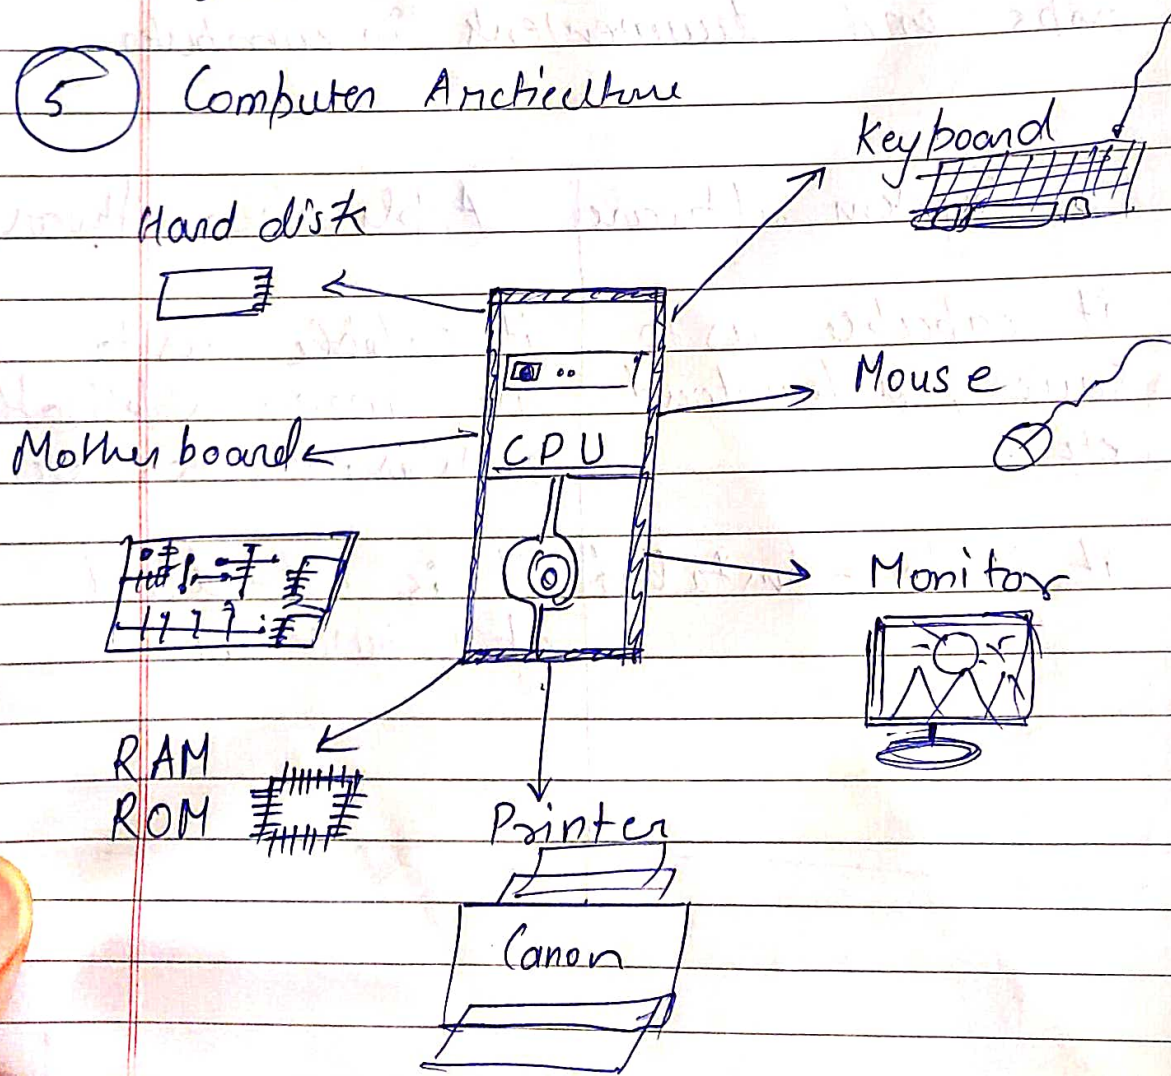 5 Computer Archticulture
Keyboard
Hard disk
Mouse
CPU
Mother board
Monitor
RAM
ROM
Printer
Canon